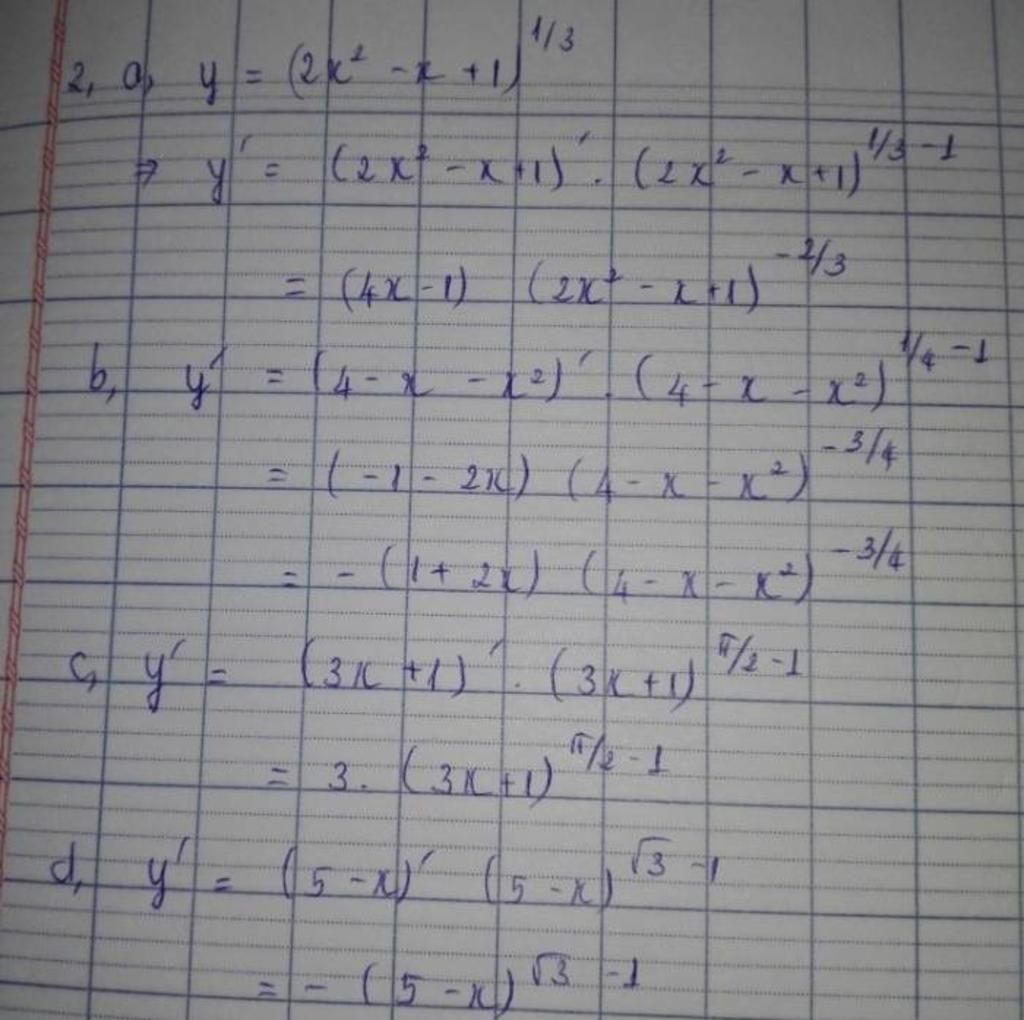 2, a, y = (2x² - x + 1)^1/3
⇒ y' = (2x² - x + 1)' . (2x² - x + 1)^1/3 - 1
= (4x - 1) (2x² - x + 1)^-2/3
b, y' = (4 - x - x²)' . (4 - x - x²)^1/4 - 1
= (-1 - 2x) (4 - x - x²)^-3/4
= - (1 + 2x) (4 - x - x²)^-3/4
c, y' = (3x + 1)' . (3x + 1)^π/2 - 1
= 3. (3x + 1)^π/2 - 1
d, y' = (5 - x)' (5 - x)^√3 - 1
= - (5 - x)^√3 - 1